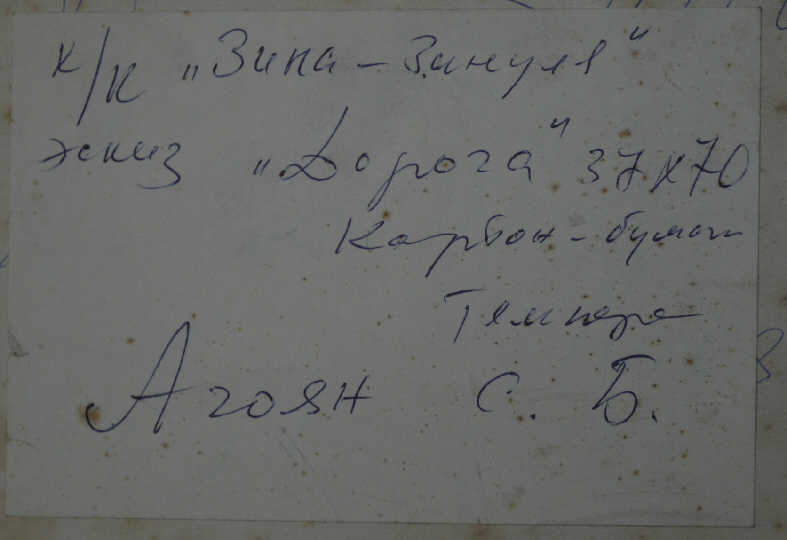 к/к „Зина-Зинуля"
эскиз „Дорога" 37х70
Картон-бумага
Темпера
Агоян С. Б.